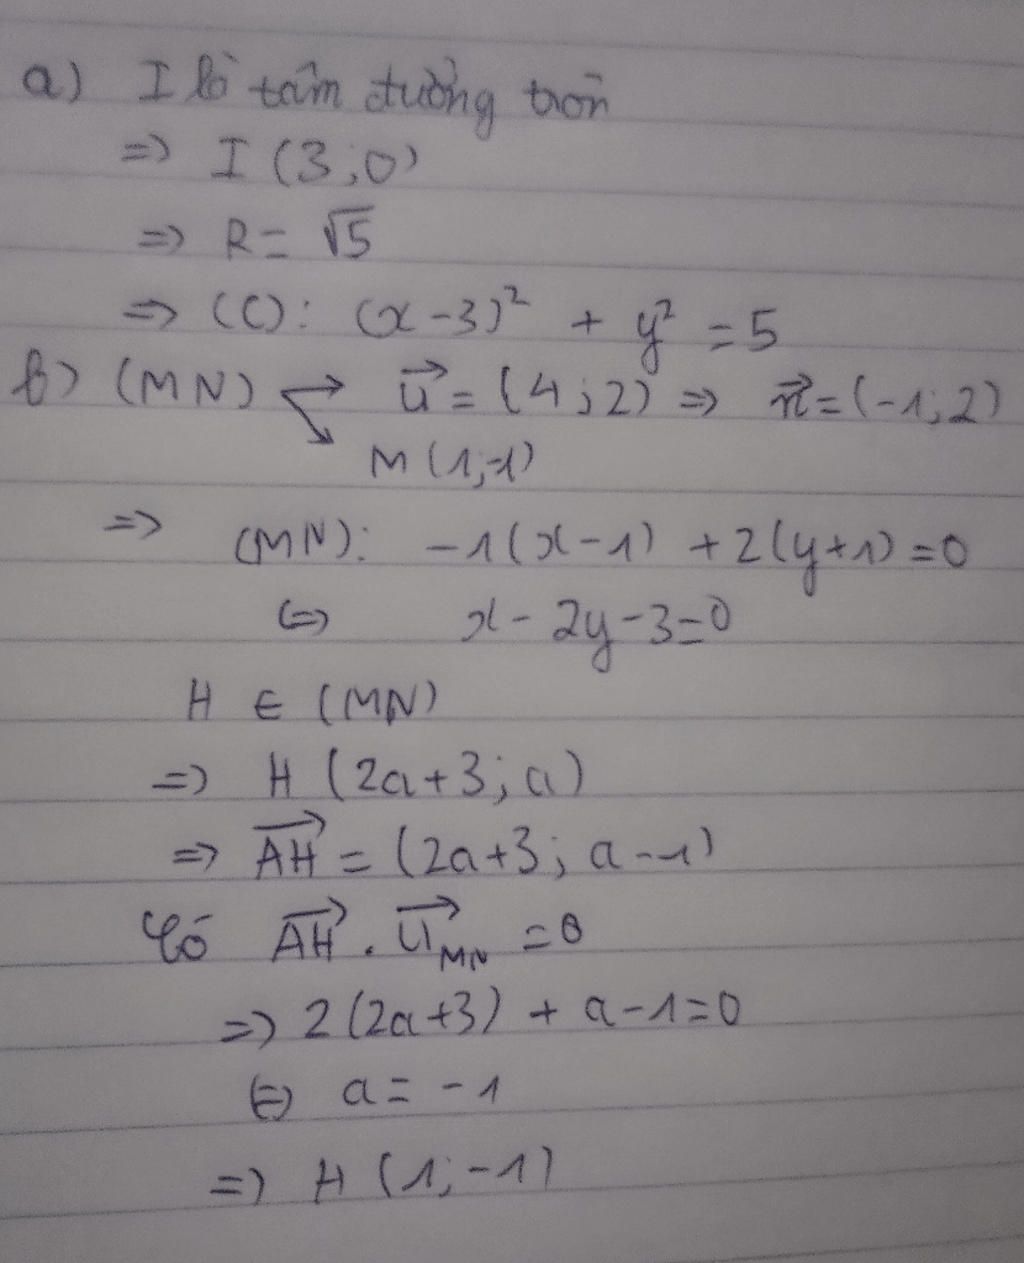 a) I là tâm đường tròn
=> I (3;0)
=> R = √5
=> (C): (x-3)² + y² = 5
b) (MN) u⃗ = (4;2) => n⃗ = (-1;2)
M (1;-1)
=> (MN): -1(x-1) + 2(y+1) = 0
<=> x - 2y - 3 = 0
H ∈ (MN)
=> H (2a+3; a)
=> AH⃗ = (2a+3; a-1)
Có AH⃗ . u⃗_MN = 0
=> 2(2a+3) + a-1 = 0
<=> a = -1
=> H (1;-1)